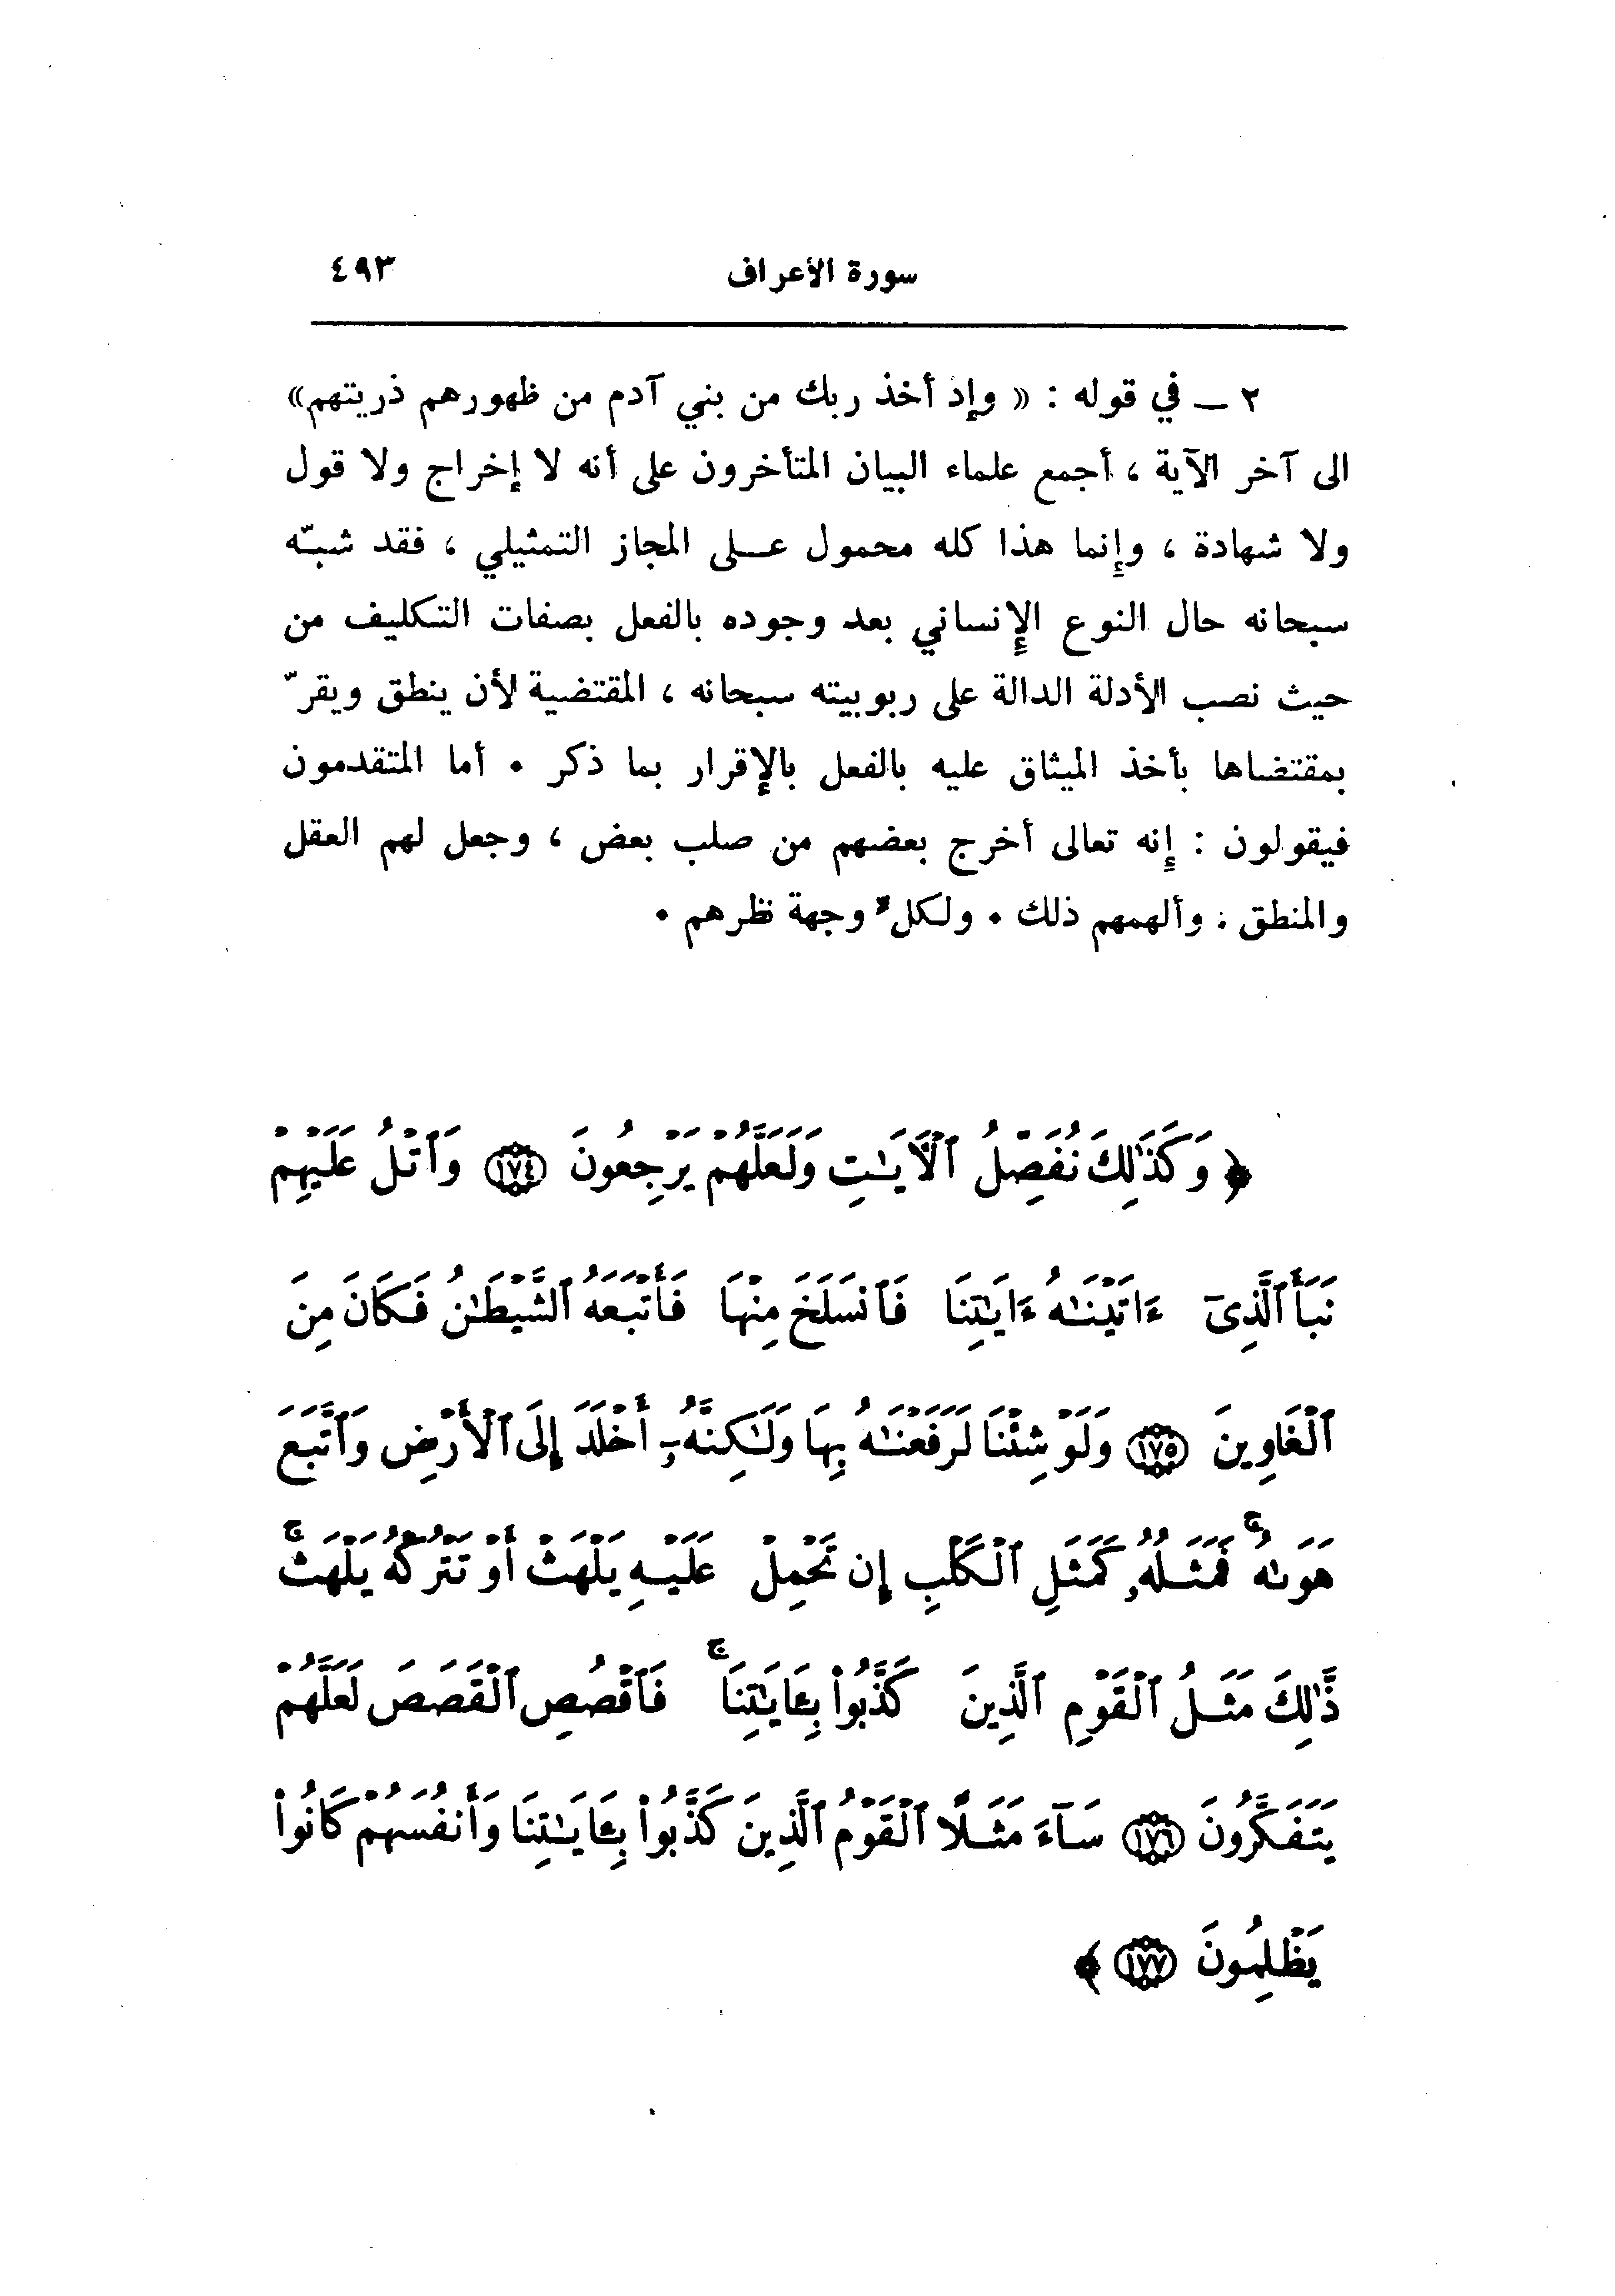 سورة الأعراف ٤٩٣
٢ ــ في قوله : « وإذ أخذ ربك من بني آدم من ظهورهم ذريتهم»
الى آخر الآية ، أجمع علماء البيان المتأخرون على أنه لا إخراج ولا قول
ولا شهادة ، وإنما هذا كله محمول عــلى المجاز التمثيلي ، فقد شبّه
سبحانه حال النوع الإنساني بعد وجوده بالفعل بصفات التكليف من
حيث نصب الأدلة الدالة على ربوبيته سبحانه ، المقتضية لأن ينطق ويقرّ
بمقتضاها بأخذ الميثاق عليه بالفعل بالإقرار بما ذكر . أما المتقدمون
فيقولون : إنه تعالى أخرج بعضهم من صلب بعض ، وجعل لهم العقل
والمنطق ، وألهمهم ذلك . ولكلٍّ وجهة نظرهم .
﴿ وَكَذَٰلِكَ نُفَصِّلُ ٱلْآيَـٰتِ وَلَعَلَّهُمْ يَرْجِعُونَ ١٧٤ وَٱتْلُ عَلَيْهِمْ
نَبَأَ ٱلَّذِىٓ ءَاتَيْنَـٰهُ ءَايَـٰتِنَا فَٱنسَلَخَ مِنْهَا فَأَتْبَعَهُ ٱلشَّيْطَـٰنُ فَكَانَ مِنَ
ٱلْغَاوِينَ ١٧٥ وَلَوْ شِئْنَا لَرَفَعْنَـٰهُ بِهَا وَلَـٰكِنَّهُۥٓ أَخْلَدَ إِلَى ٱلْأَرْضِ وَٱتَّبَعَ
هَوَىٰهُ ۚ فَمَثَلُهُۥ كَمَثَلِ ٱلْكَلْبِ إِن تَحْمِلْ عَلَيْهِ يَلْهَثْ أَوْ تَتْرُكْهُ يَلْهَث ۚ
ذَّٰلِكَ مَثَلُ ٱلْقَوْمِ ٱلَّذِينَ كَذَّبُوا۟ بِـَٔايَـٰتِنَا ۚ فَٱقْصُصِ ٱلْقَصَصَ لَعَلَّهُمْ
يَتَفَكَّرُونَ ١٧٦ سَآءَ مَثَلًا ٱلْقَوْمُ ٱلَّذِينَ كَذَّبُوا۟ بِـَٔايَـٰتِنَا وَأَنفُسَهُمْ كَانُوا۟
يَظْلِمُونَ ١٧٧ ﴾